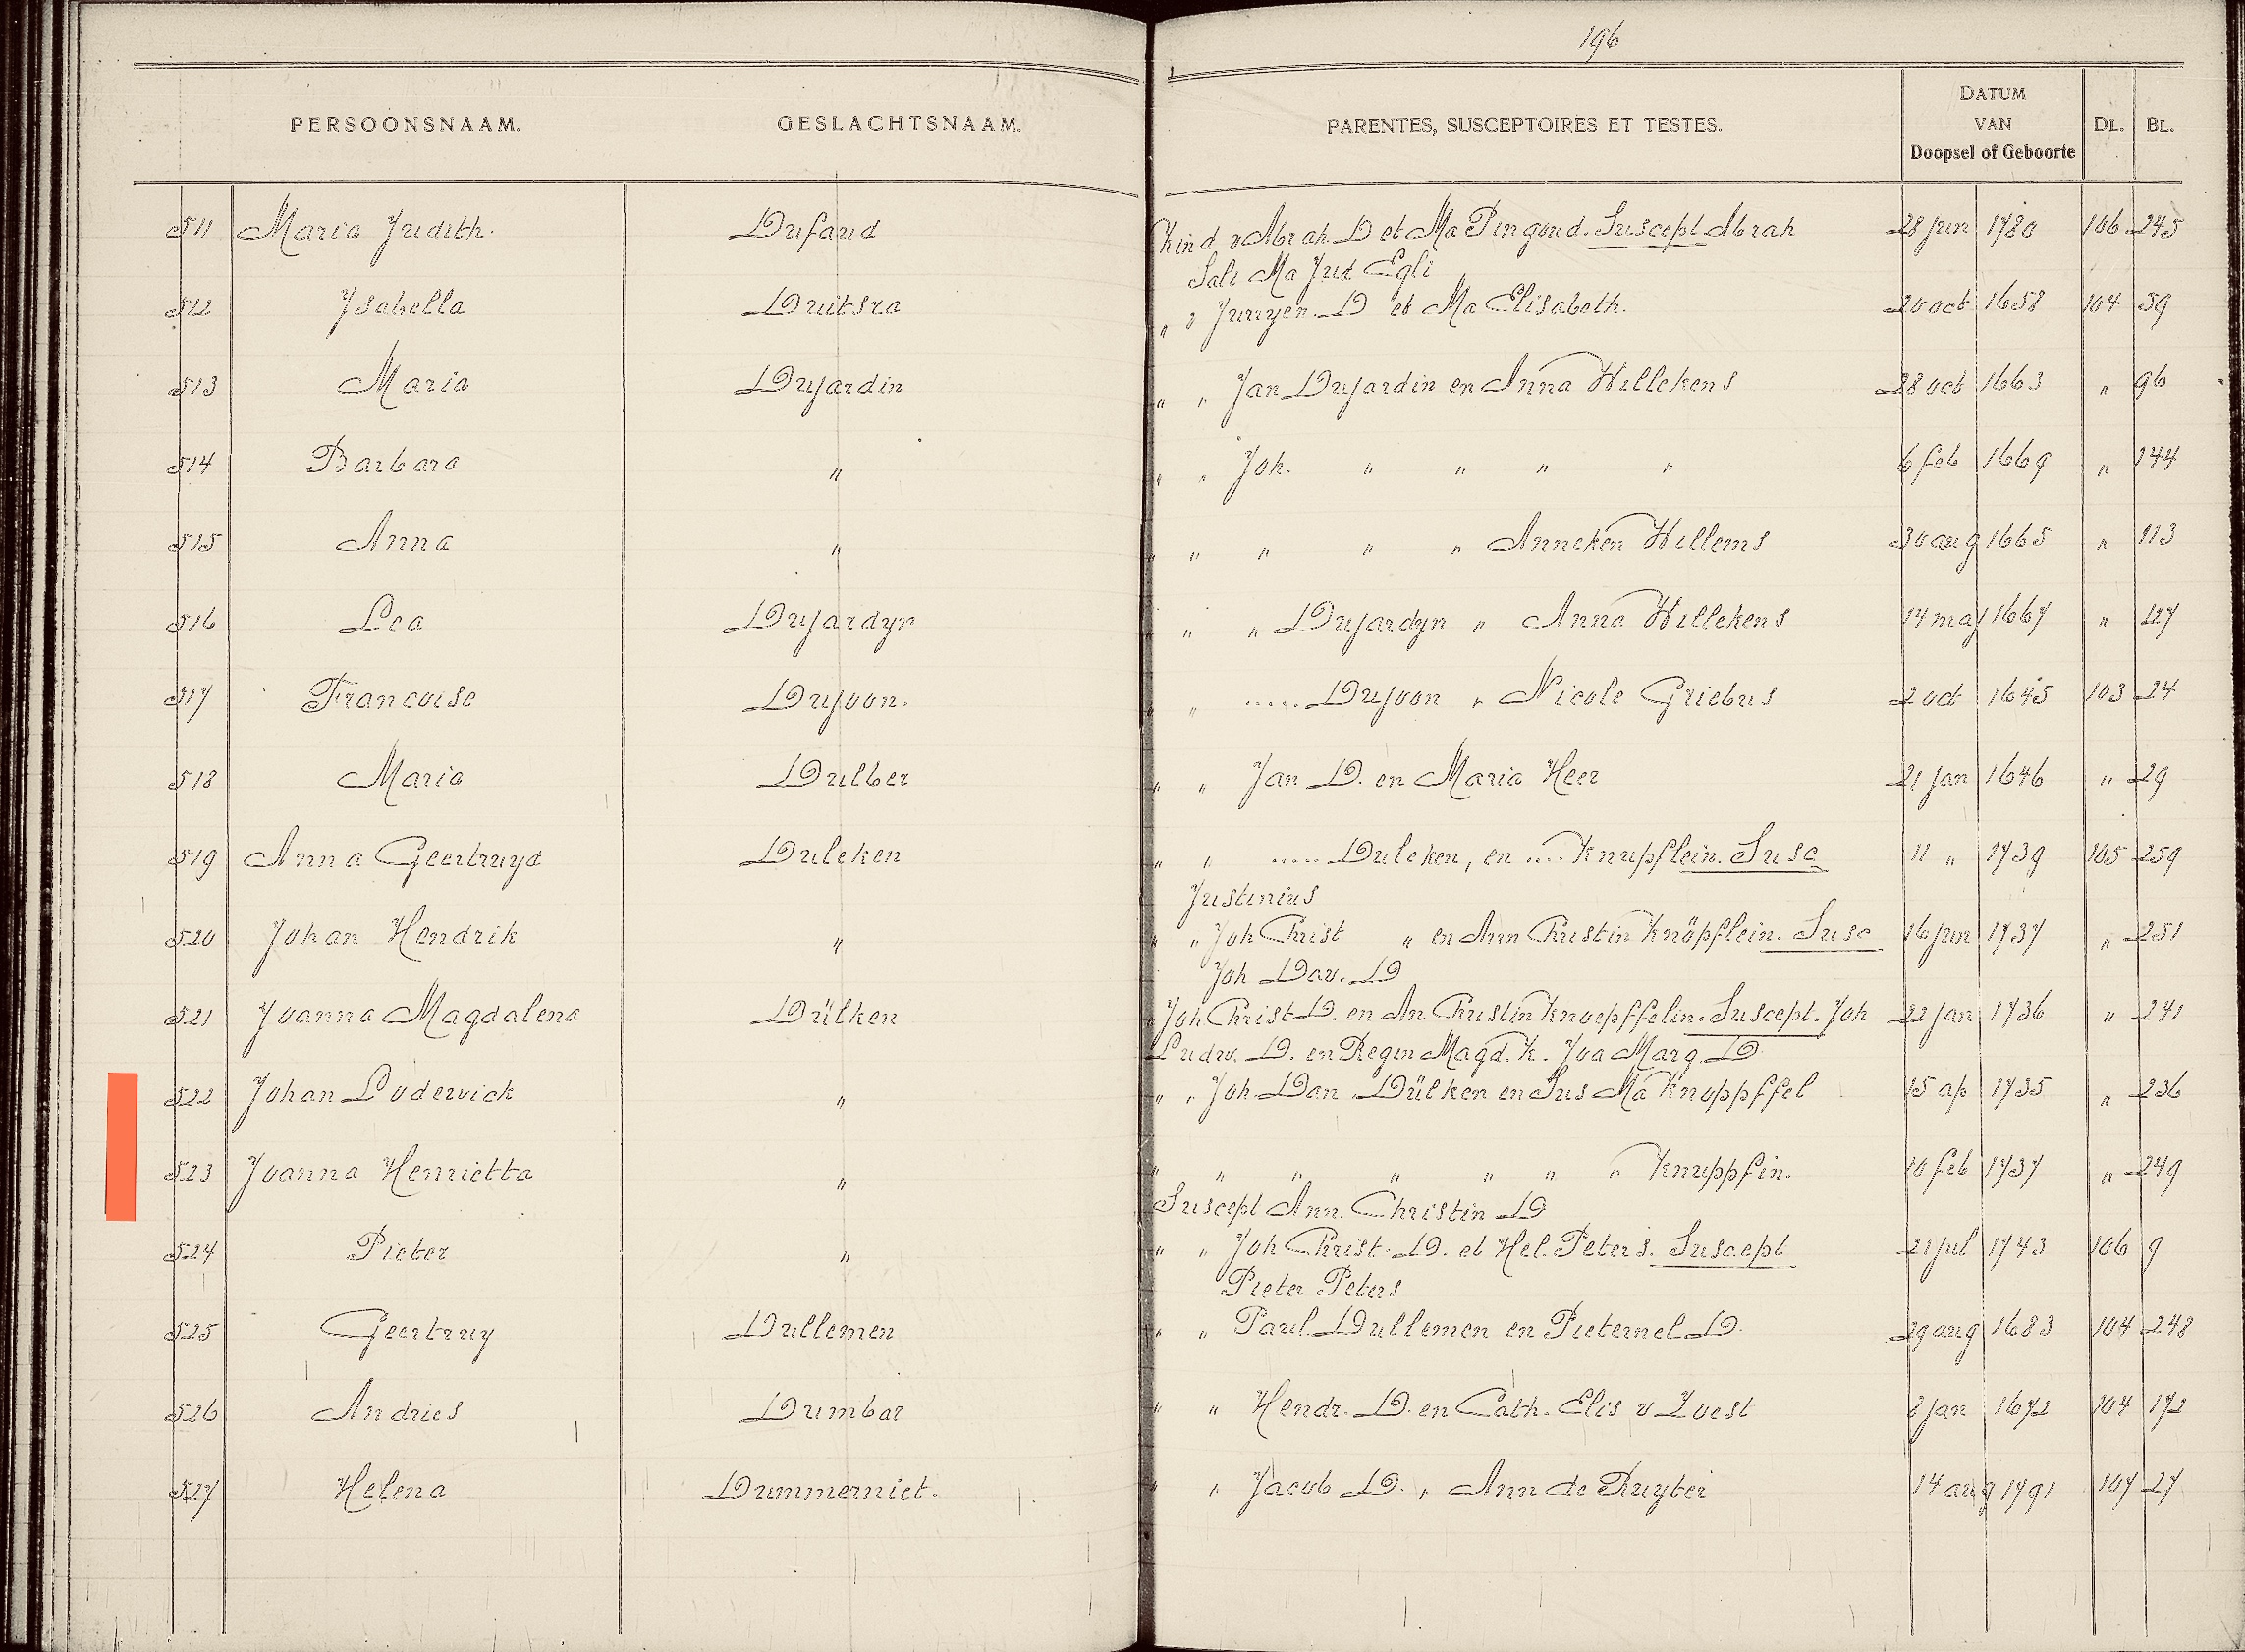 196
PERSOONSNAAM. GESLACHTSNAAM. PARENTES, SUSCEPTOIRES ET TESTES. DATUM VAN Doopsel of Geboorte DL. BL.
511 Maria Judith. Dufaud Kind v Abrah. D et Ma Pingoud. Suscept Abrah 28 jun 1780 106 245
Sali Ma Jud Egli
512 Ysabella Duitsra " v Jurryen D et Ma Elisabeth. 20 oct 1658 104 59
513 Maria Dujardin " " Jan Dujardin en Anna Willekens 28 oct 1663 " 96
514 Barbara " " " Joh. " " " " 6 feb 1669 " 144
515 Anna " " " " " " Anneken Willems 30 aug 1665 " 113
516 Lea Dujardyn " " Dujardyn " Anna Willekens 14 maj 1667 " 127
517 Francoise Dujoon. " " ..... Dujoon " Nicole Griebus 2 oct 1645 103 24
518 Maria Dulber " " Jan D. en Maria Heer 21 jan 1646 " 29
519 Anna Geertruyd Duleken " " ..... Duleken, en .... Knupflein. Susc 11 " 1739 105 259
Justinius
520 Johan Hendrik " " " Joh Christ " en Ann Christin Knöpflein. Susc 16 jun 1737 " 251
Joh Dav. D
521 Joanna Magdalena Dülken " Joh Christ D. en An. Christin Knoepffelin. Suscept. Joh 22 jan 1736 " 241
Ludw. D. en Regin Magd. K. Joa Marg. D
522 Johan Lodewick " " " Joh Dan Dülken en Sus Ma Knoppffel 15 ap 1735 " 236
523 Joanna Henrietta " " " " " " " " Knuppfin. 10 feb 1737 " 249
Suscept Ann. Christin D
524 Pieter " " " Joh Christ. D. et Hel. Peters. Suscept 21 jul 1743 106 9
Pieter Peters
525 Geertruy Dullemen " " Paul Dullemen en Pieternel D. 29 aug 1683 104 248
526 Andries Dumbar " " Hendr. D. en Cath. Elis v Zoest 8 jan 1672 104 172
527 Helena Dummerniet. " " Jacob D. " Ann de Ruyter 14 aug 1791 107 27